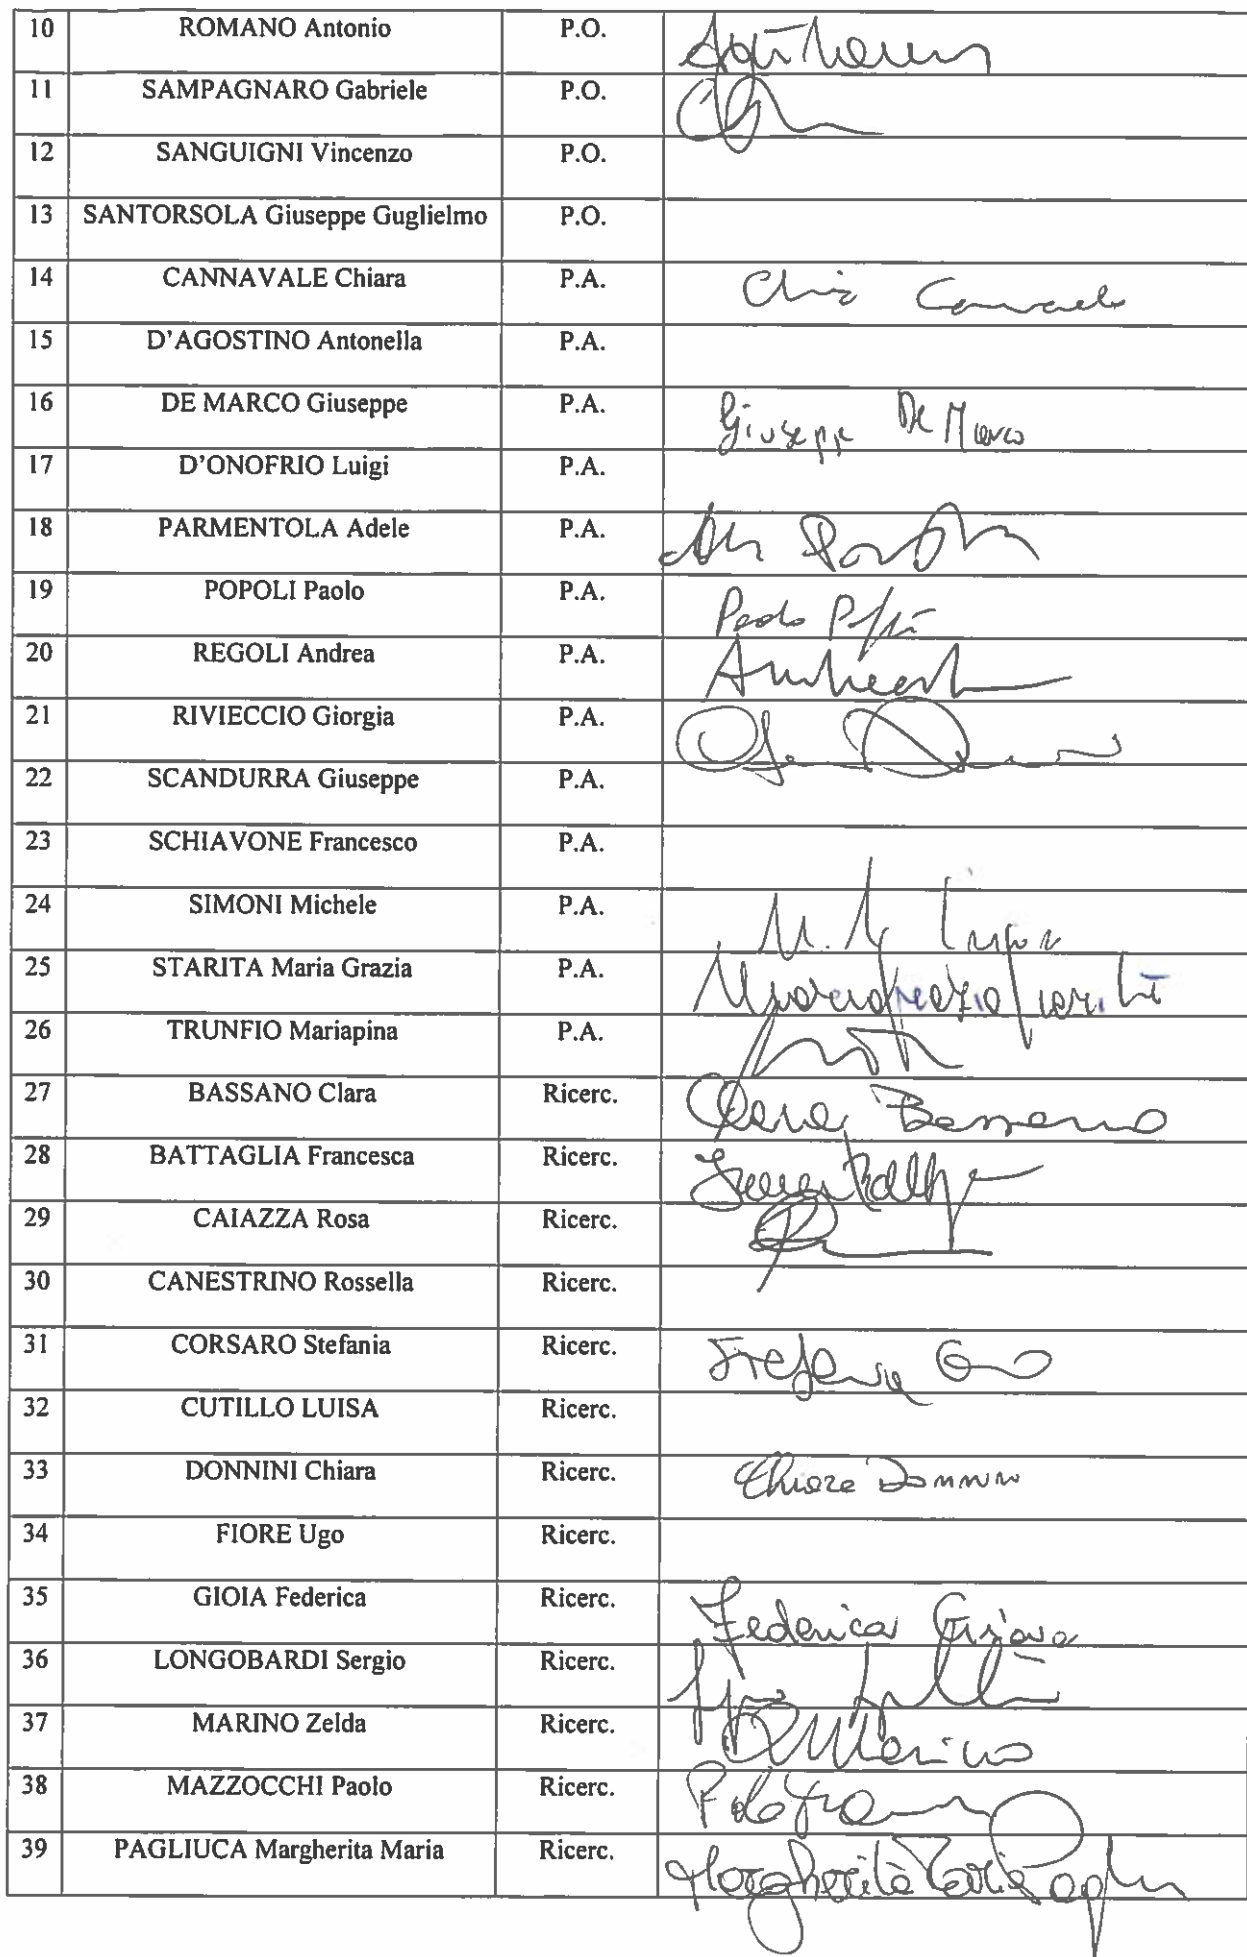 10 ROMANO Antonio P.O.
11 SAMPAGNARO Gabriele P.O.
12 SANGUIGNI Vincenzo P.O.
13 SANTORSOLA Giuseppe Guglielmo P.O.
14 CANNAVALE Chiara P.A.
15 D'AGOSTINO Antonella P.A.
16 DE MARCO Giuseppe P.A. Giuseppe De Marco
17 D'ONOFRIO Luigi P.A.
18 PARMENTOLA Adele P.A.
19 POPOLI Paolo P.A.
20 REGOLI Andrea P.A.
21 RIVIECCIO Giorgia P.A.
22 SCANDURRA Giuseppe P.A.
23 SCHIAVONE Francesco P.A.
24 SIMONI Michele P.A.
25 STARITA Maria Grazia P.A.
26 TRUNFIO Mariapina P.A.
27 BASSANO Clara Ricerc. Clara Bassano
28 BATTAGLIA Francesca Ricerc.
29 CAIAZZA Rosa Ricerc.
30 CANESTRINO Rossella Ricerc.
31 CORSARO Stefania Ricerc. Stefania
32 CUTILLO LUISA Ricerc.
33 DONNINI Chiara Ricerc. Chiara Donnini
34 FIORE Ugo Ricerc.
35 GIOIA Federica Ricerc. Federica Gioia
36 LONGOBARDI Sergio Ricerc.
37 MARINO Zelda Ricerc. Marino
38 MAZZOCCHI Paolo Ricerc.
39 PAGLIUCA Margherita Maria Ricerc. Margherita Maria